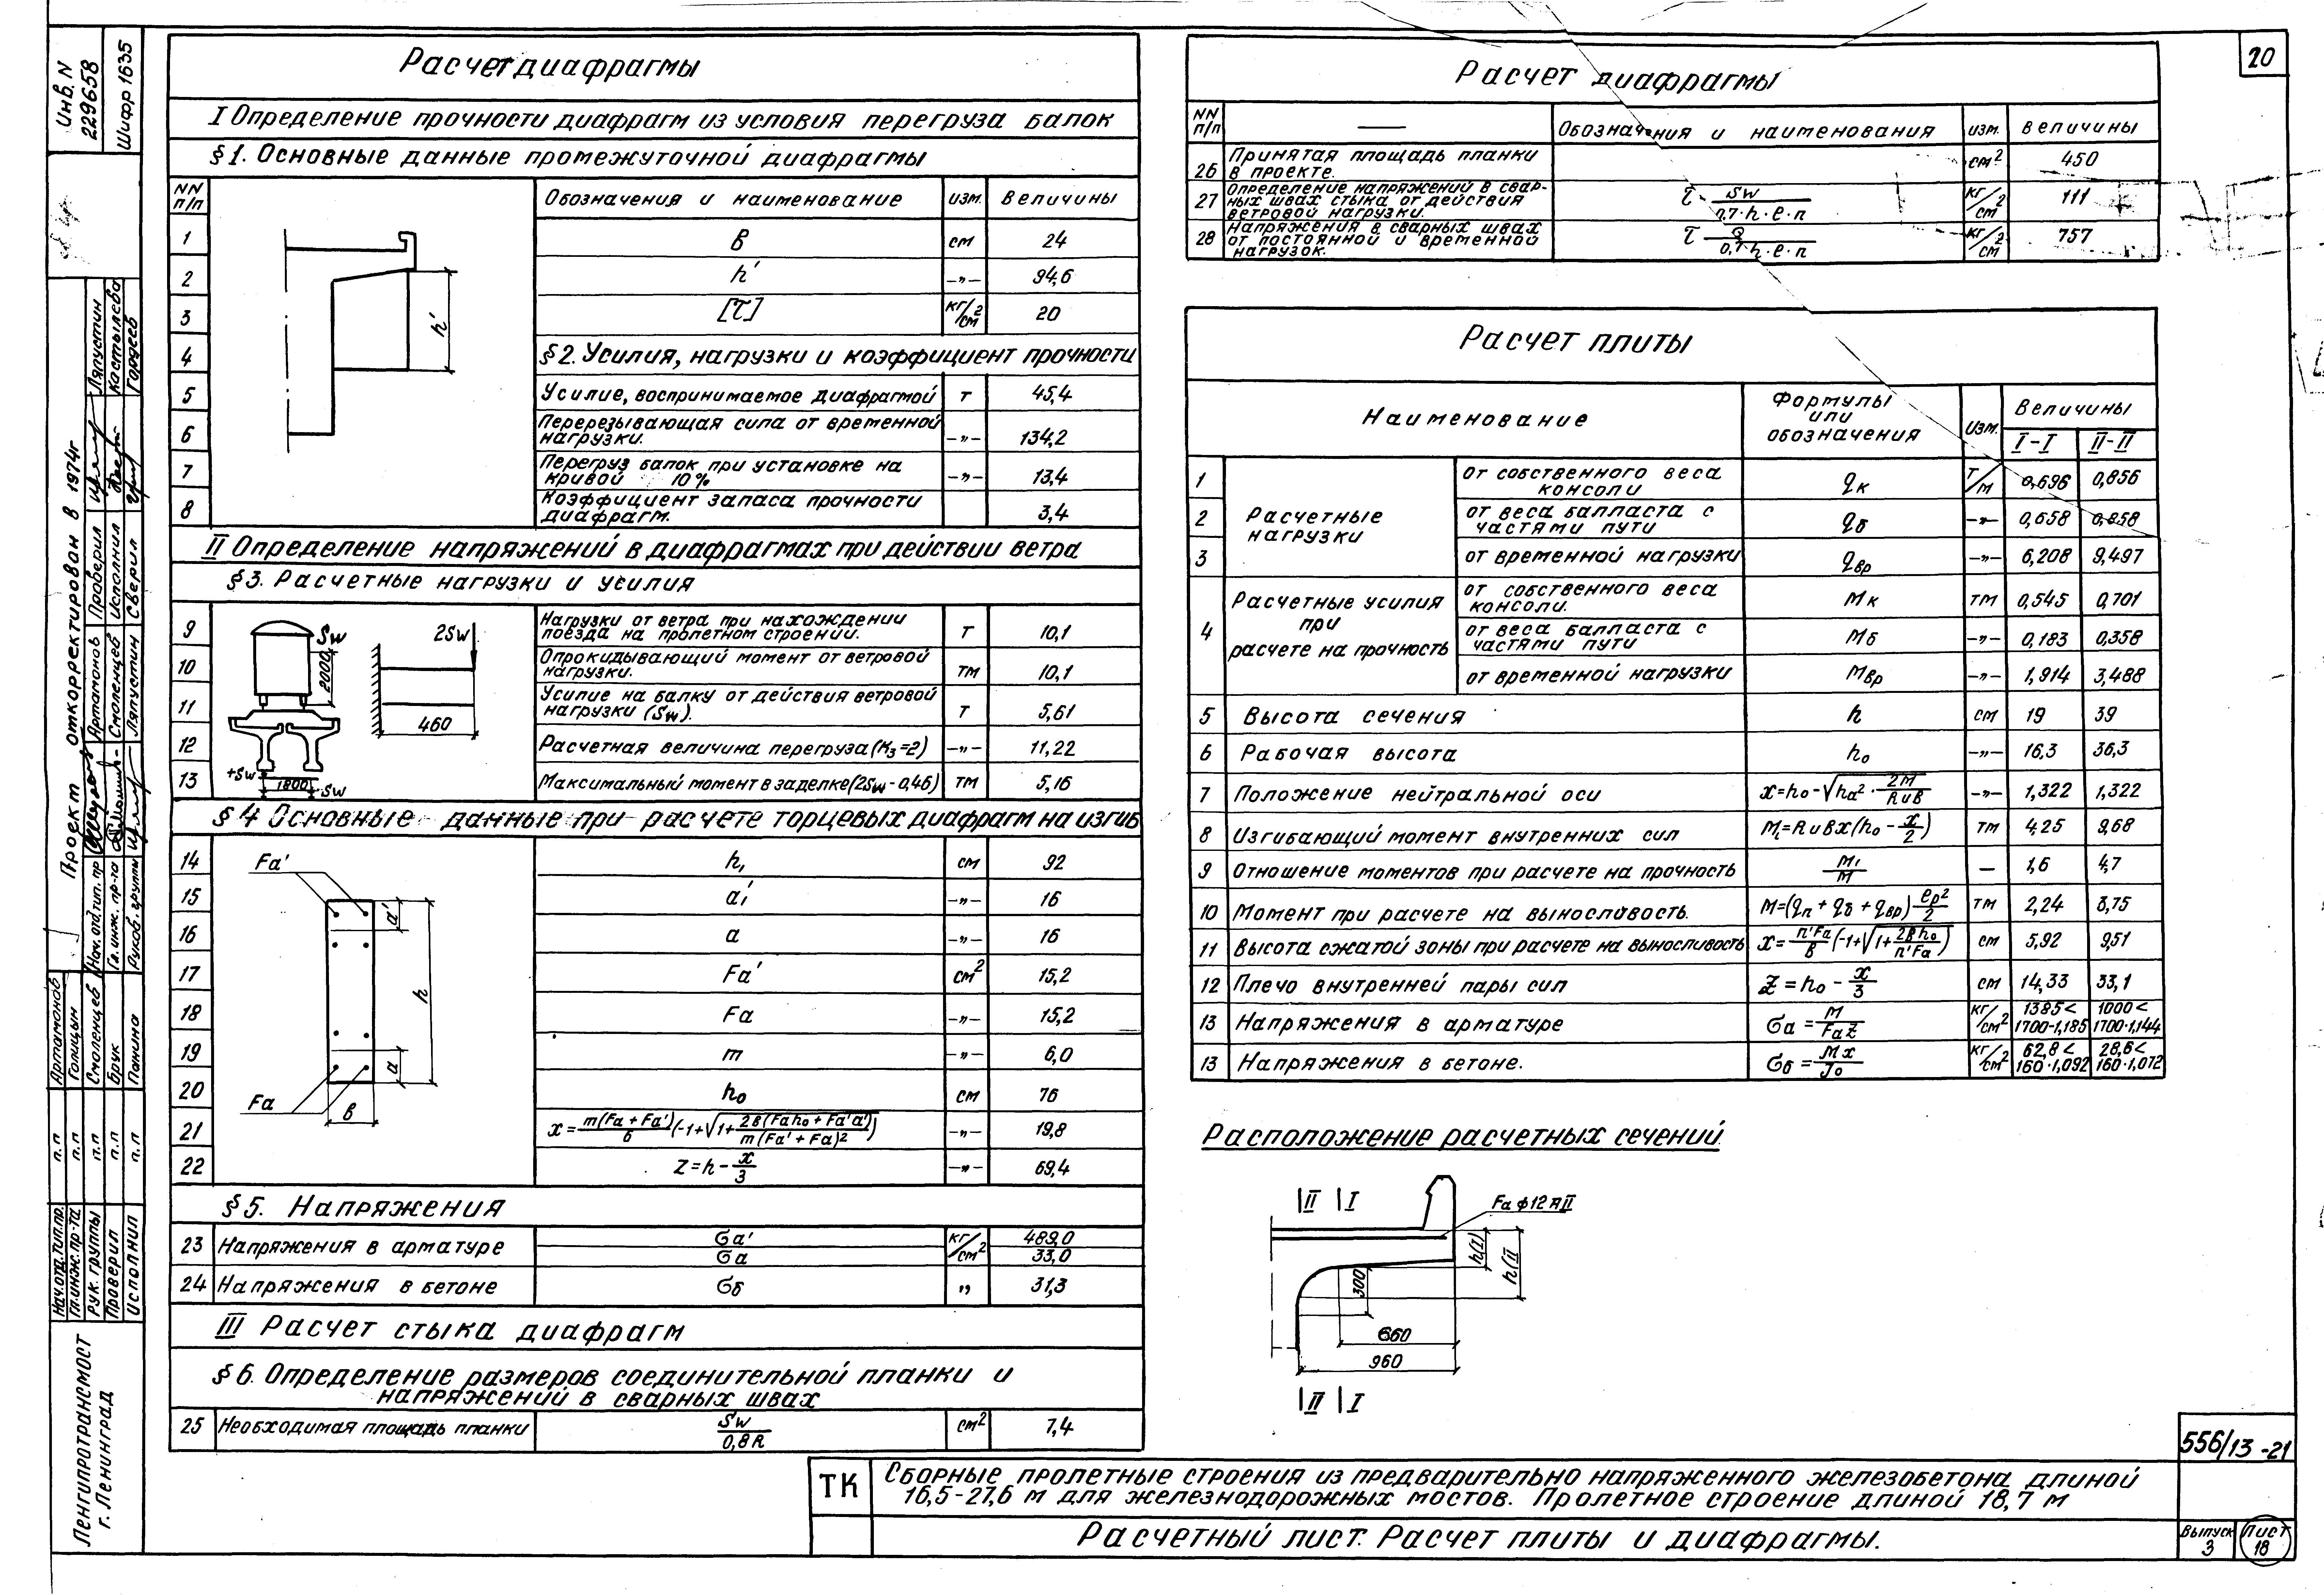 20
Инв. N
229658
Шифр 1635
Проект откорректирован в 1974г
Расчет диафрагмы
I Определение прочности диафрагм из условия перегруза балок
§1. Основные данные промежуточной диафрагмы
NN п/п Обозначения и наименование изм. Величины
1 в см 24
2 h' -„- 94,6
3 [τ] кг/см² 20
4 §2. Усилия, нагрузки и коэффициент прочности
5 Усилие, воспринимаемое диафрагмой т 45,4
6 Перерезывающая сила от временной
нагрузки. -„- 134,2
7 Перегруз балок при установке на
кривой 10% -„- 13,4
8 Коэффициент запаса прочности
диафрагм. 3,4
h'
II Определение напряжений в диафрагмах при действии ветра
§3. Расчетные нагрузки и усилия
9 Нагрузки от ветра при нахождении
поезда на пролетном строении. т 10,1
10 Опрокидывающий момент от ветровой
нагрузки. тм 10,1
11 Усилие на балку от действия ветровой
нагрузки (Sw). т 5,61
12 Расчетная величина перегруза (К₃=2) -„- 11,22
13 Максимальный момент в заделке (2Sw-0,46) тм 5,16
Sw
2000
2Sw
460
+Sw
1800
-Sw
§4 Основные данные при расчете торцевых диафрагм на изгиб
14 h₁ см 92
15 a'₁ -„- 16
16 а -„- 16
17 Fa' см² 15,2
18 Fa -„- 15,2
19 m -„- 6,0
20 h₀ см 76
21 x = m(Fa+Fa')/б (-1+√1+ 2в(Fah₀+Fa'a')/m(Fa'+Fa)²) -„- 19,8
22 Z=h-x/3 -„- 69,4
Fa'
a'
h
a
Fa
в
§5. Напряжения
23 Напряжения в арматуре σа' кг/см² 489,0
σа 33,0
24 Напряжения в бетоне σб „ 31,3
III Расчет стыка диафрагм
§6. Определение размеров соединительной планки и
напряжений в сварных швах
25 Необходимая площадь планки Sw/0,8R см² 7,4
Расчет диафрагмы
NN п/п — Обозначения и наименования изм. Величины
26 Принятая площадь планки
в проекте. см² 450
27 Определение напряжений в свар-
ных швах стыка от действия
ветровой нагрузки. τ Sw/0,7·h·ℓ·n кг/см² 111
28 Напряжения в сварных швах
от постоянной и временной
нагрузок. τ Q/0,7·h·ℓ·n кг/см² 757
Расчет плиты
Наименование Формулы или обозначения изм. Величины
I-I II-II
1 Расчетные нагрузки от собственного веса
консоли qк т/м 0,696 0,856
2 от веса балласта с
частями пути qб -„- 0,658 0,858
3 от временной нагрузки qвр -„- 6,208 9,497
4 Расчетные усилия при расчете на прочность от собственного веса
консоли. Мк тм 0,545 0,701
от веса балласта с
частями пути Мб -„- 0,183 0,358
от временной нагрузки Мвр -„- 1,914 3,488
5 Высота сечения h см 19 39
6 Рабочая высота h₀ -„- 16,3 36,3
7 Положение нейтральной оси x=h₀-√hа²· 2М/Rив -„- 1,322 1,322
8 Изгибающий момент внутренних сил М₁=Rивх(h₀-x/2) тм 4,25 9,68
9 Отношение моментов при расчете на прочность М₁/М — 1,6 4,7
10 Момент при расчете на выносливость. М=(qп+qб+qвр) ℓр²/2 тм 2,24 3,75
11 Высота сжатой зоны при расчете на выносливость x= n'Fa/в (-1+√1+ 2вh₀/n'Fa) см 5,92 9,51
12 Плечо внутренней пары сил Z=h₀-x/3 см 14,33 33,1
13 Напряжения в арматуре σа=М/FaZ кг/см² 1385< 1700·1,185 1000< 1700·1,144
13 Напряжения в бетоне. σб=Мх/J₀ кг/см² 62,8< 160·1,092 28,6< 160·1,072
Расположение расчетных сечений
II I
Fa ф12 АII
h(I)
h(II
300
660
960
II I
Нач. отд. тип. пр. п.п Артамонов
Гл. инж. пр-та п.п Голицын
Рук. группы п.п Смоленцев
Проверил п.п Брук
Исполнил п.п Панина
Нач. отд. тип. пр Артамонов
Гл. инж. пр-та Смоленцев
Руков. группы Ляпустин
Проверил Ляпустин
Исполнил Костылева
Сверил Гордеев
Ленгипротрансмост
г. Ленинград
556/13 -21
ТК
Сборные пролетные строения из предварительно напряженного железобетона длиной
16,5-27,6 м для железнодорожных мостов. Пролетное строение длиной 18,7 м
Расчетный лист. Расчет плиты и диафрагмы.
Выпуск 3
Лист 18